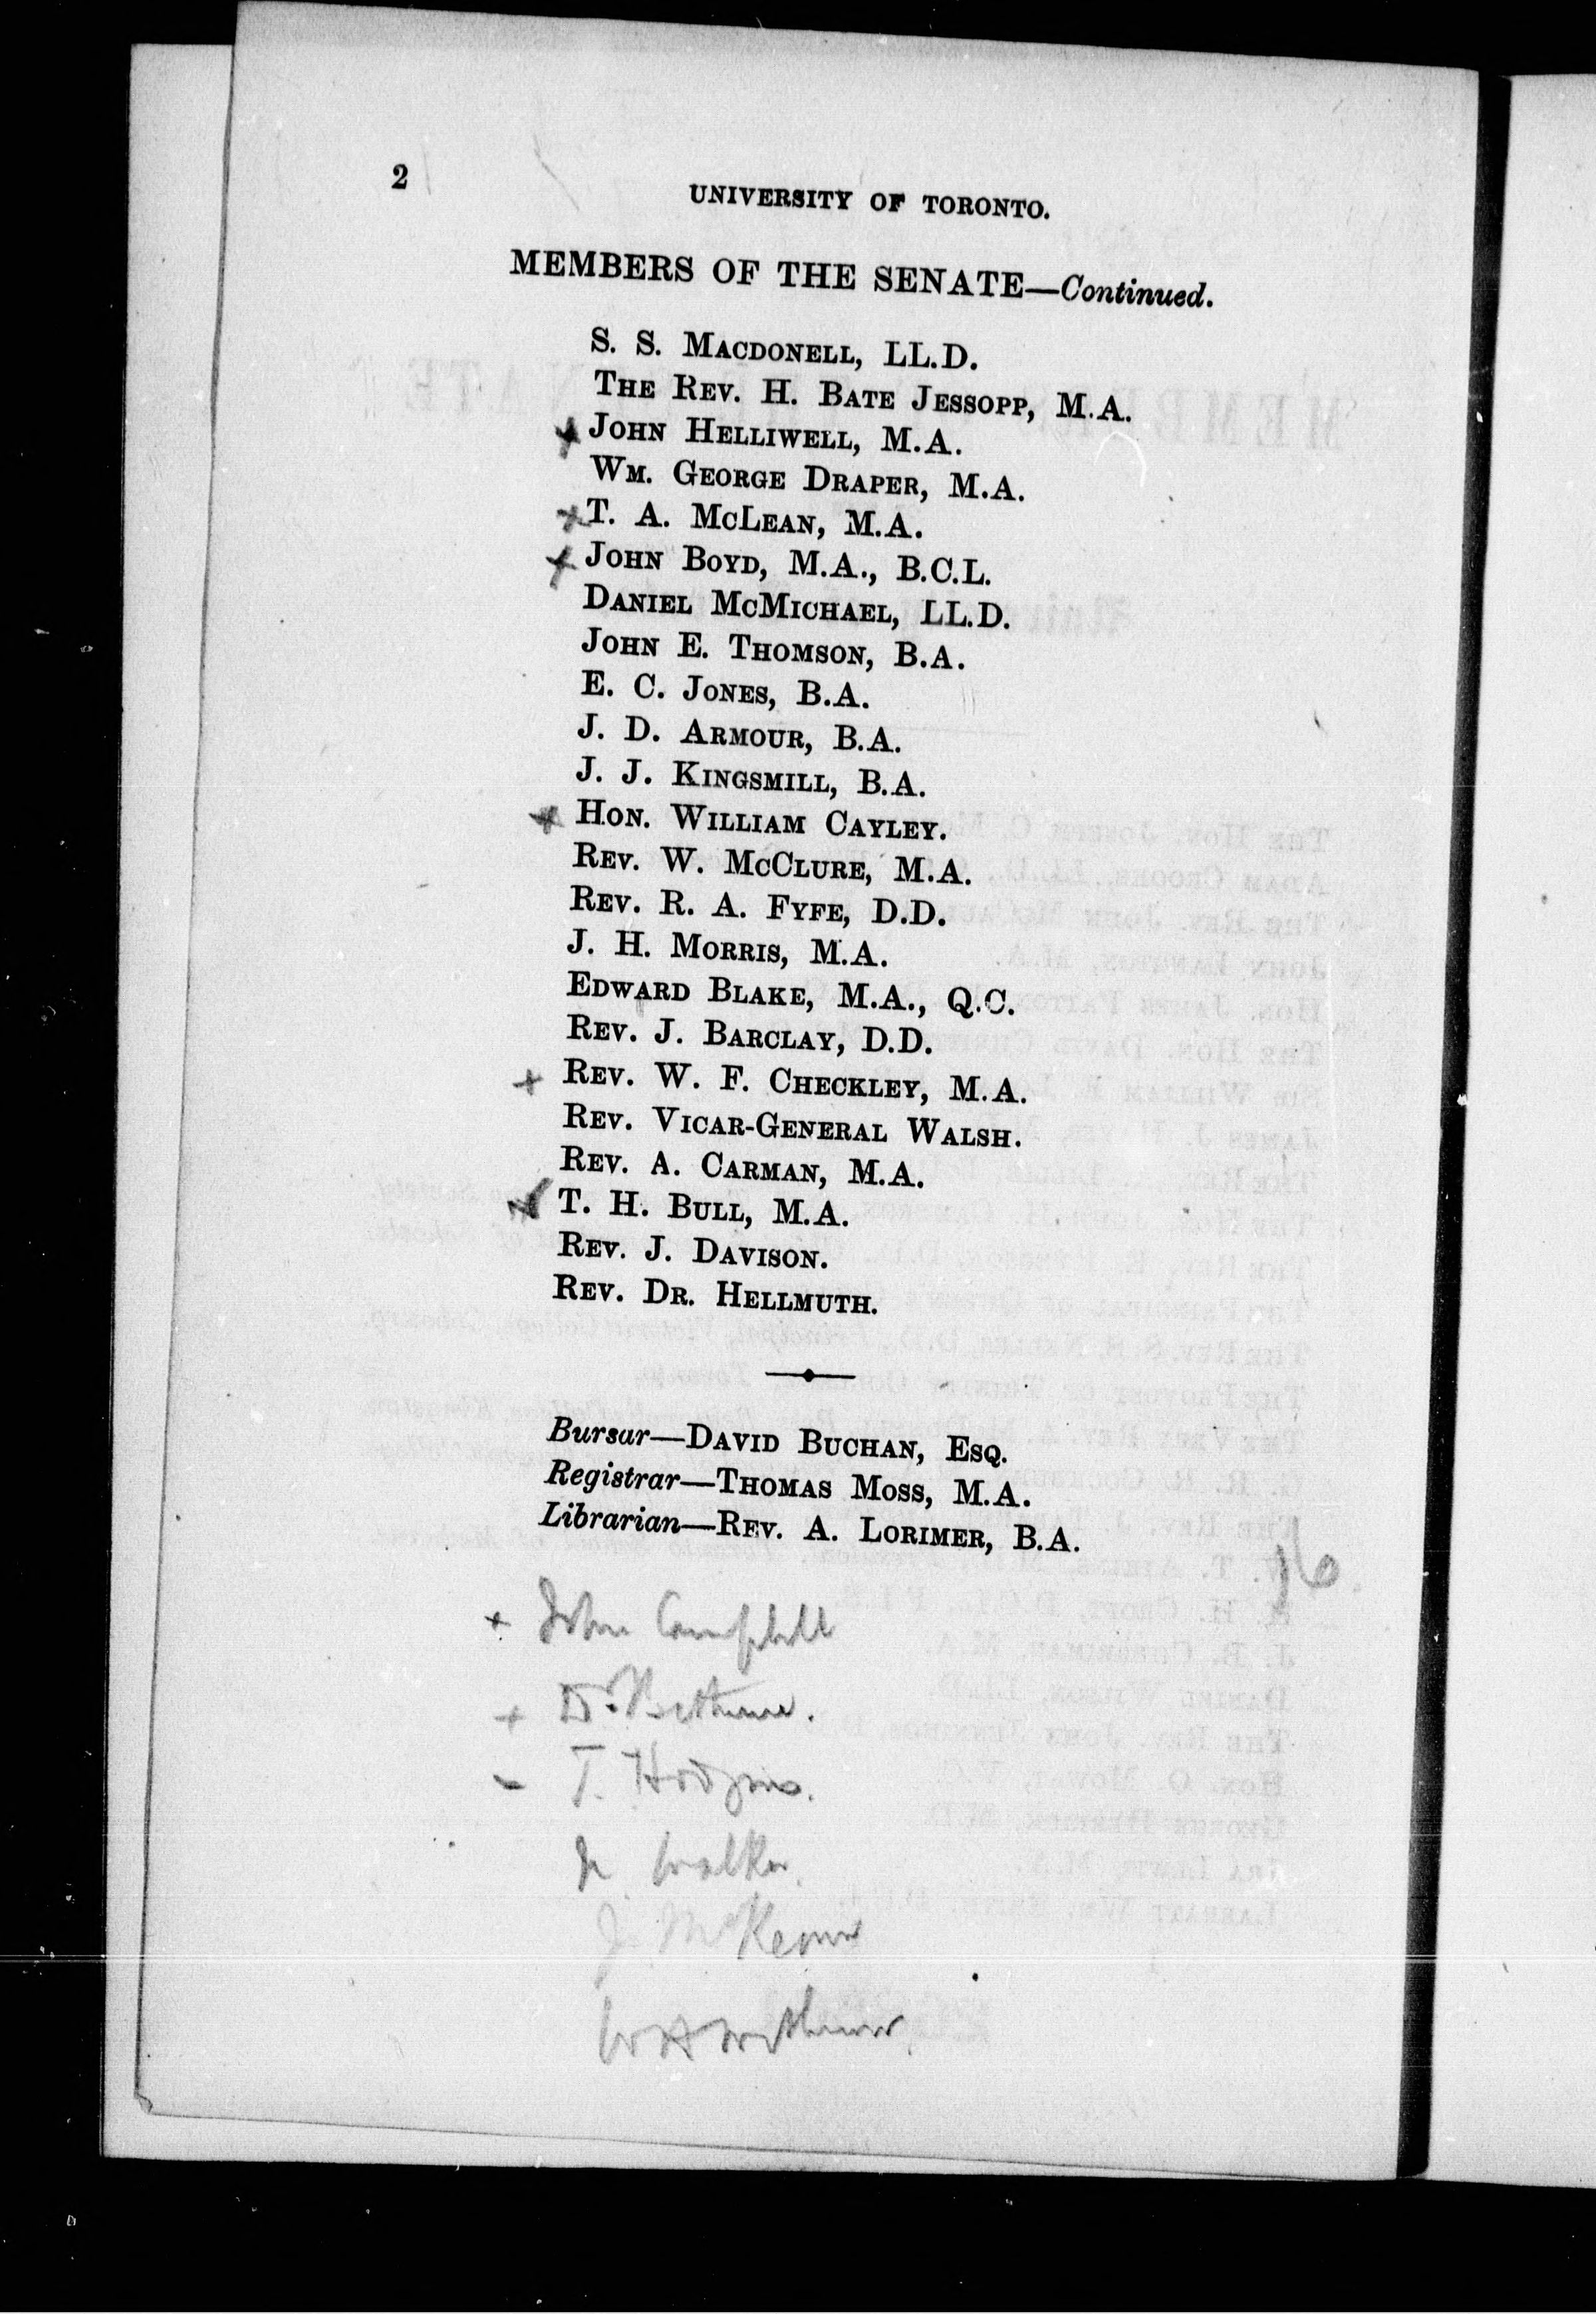 2
UNIVERSITY OF TORONTO.
MEMBERS OF THE SENATE—Continued.
S. S. MACDONELL, LL.D.
THE REV. H. BATE JESSOPP, M.A.
+ JOHN HELLIWELL, M.A.
WM. GEORGE DRAPER, M.A.
+ T. A. MCLEAN, M.A.
+ JOHN BOYD, M.A., B.C.L.
DANIEL MCMICHAEL, LL.D.
JOHN E. THOMSON, B.A.
E. C. JONES, B.A.
J. D. ARMOUR, B.A.
J. J. KINGSMILL, B.A.
+ HON. WILLIAM CAYLEY.
REV. W. MCCLURE, M.A.
REV. R. A. FYFE, D.D.
J. H. MORRIS, M.A.
EDWARD BLAKE, M.A., Q.C.
REV. J. BARCLAY, D.D.
+ REV. W. F. CHECKLEY, M.A.
REV. VICAR-GENERAL WALSH.
REV. A. CARMAN, M.A.
+ T. H. BULL, M.A.
REV. J. DAVISON.
REV. DR. HELLMUTH.
Bursar—DAVID BUCHAN, ESQ.
Registrar—THOMAS MOSS, M.A.
Librarian—REV. A. LORIMER, B.A.
16
+ John Campbell
+ Dr. Bethune.
- T. Hodgins.
Walker.
J. McKeown